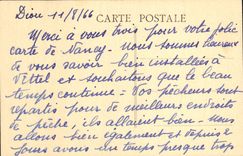 Diou 11/8/66
CARTE POSTALE
Merci à vous trois pour votre jolie
carte de Nancy - nous sommes heureux
de vous savoir bien installés à
Vittel et souhaitons que le beau
temps continue = Vos pêcheurs sont
repartis pour de meilleurs endroits
de pêche, ils allaient bien - nous
allons bien également et depuis 2
jours avons un temps presque trop